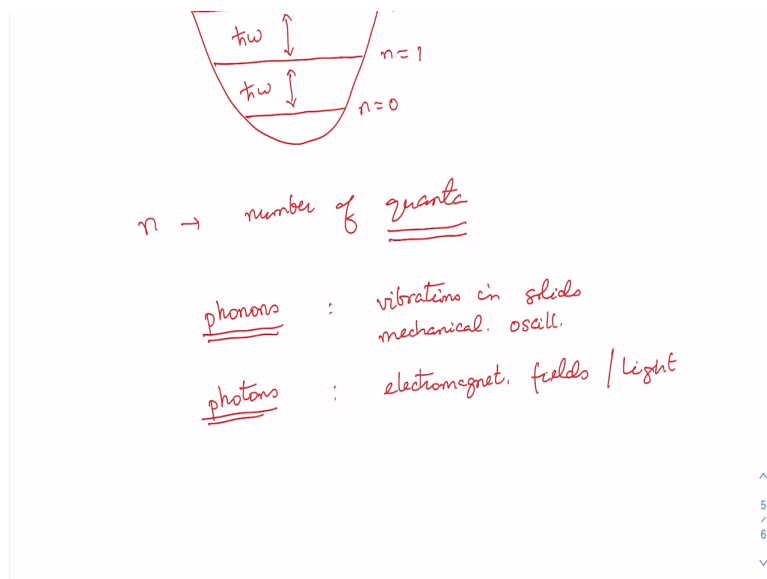 ħω
n=1
ħω
n=0
n → number of quanta
phonons : vibrations in solids
mechanical. oscill.
photons : electromagnet. fields / light
5
/
6